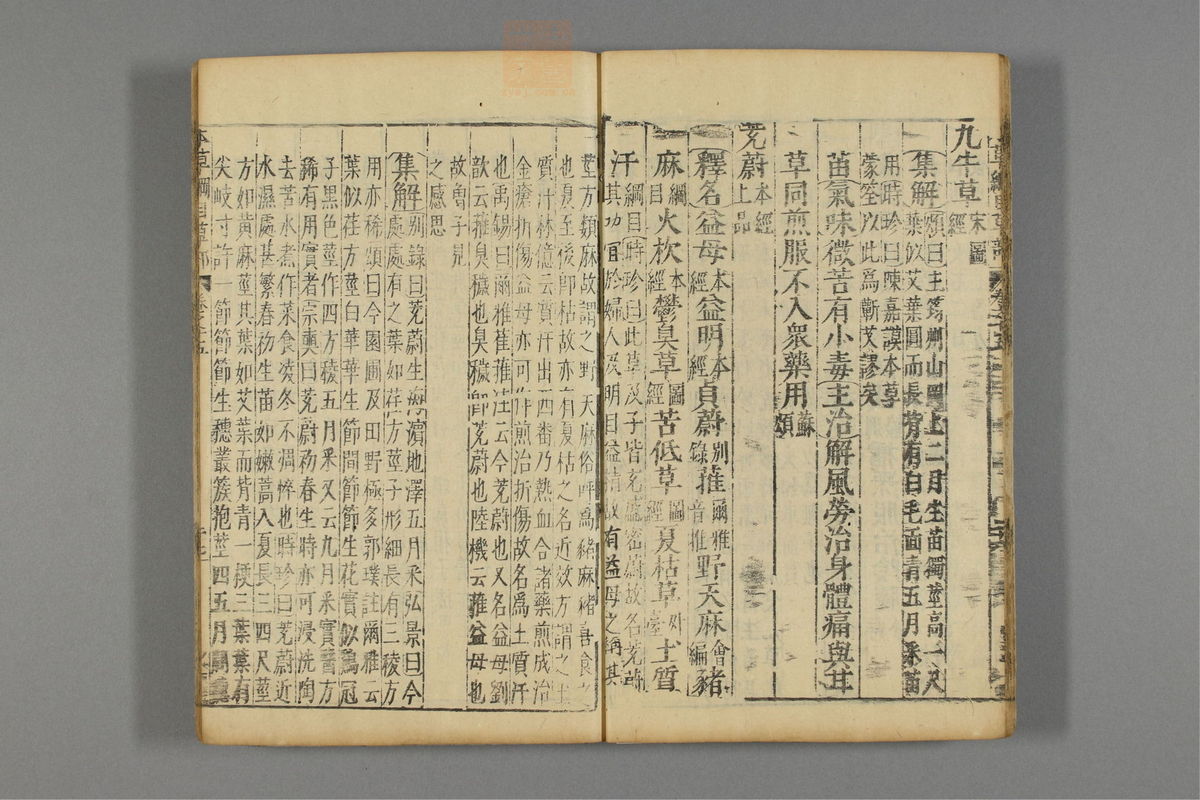 九牛草宋圖經
集解頌曰生筠州山岡上二月生苗獨莖高一尺
葉似艾葉圓而長背有白毛面青五月采苗
用時珍曰陳嘉謨本草
蒙筌以此爲蘄艾謬矣
苗氣味微苦有小毒主治解風勞治身體痛與甘
草同煎服不入衆藥用蘇頌
茺蔚本經上品
釋名益母本經益明本經貞蔚別錄蓷爾雅音推野天麻會編豬
麻綱目火杴本經鬱臭草圖經苦低草圖經夏枯草外臺土質
汗綱目時珍曰此草及子皆充盛密蔚故名茺蔚
其功宜於婦人及明目益精故有益母之稱其
莖方類麻故謂之野天麻俗呼爲豬麻豬喜食之
也夏至後即枯故亦有夏枯之名近效方謂之土
質汗林億云質汗出西番乃熱血合諸藥煎成治
金瘡折傷益母亦可作煎治折傷故名爲土質汗
也禹錫曰爾雅萑蓷注云今茺蔚也又名益母劉
歆云蓷臭穢也臭穢卽茺蔚也陸機云蓷益母也
故曾子見
之感思
集解別錄曰茺蔚生海濱池澤五月采弘景曰今
處處有之葉如荏方莖子形細長有三稜方
用亦稀頌曰今園圃及田野極多郭璞註爾雅云
葉似荏方莖白華華生節間節節生花實似雞冠
子黑色莖作四方稜五月采又云九月采實醫方
稀有用實者宗奭曰茺蔚初春生時亦可浸洗淘
去苦水煮作菜食凌冬不凋悴也時珍曰茺蔚近
水濕處甚繁春初生苗如嫩蒿入夏長三四尺莖
方如黄麻莖其葉如艾葉而背青一梗三葉葉有
尖岐寸許一節節節生穗叢簇抱莖四五月